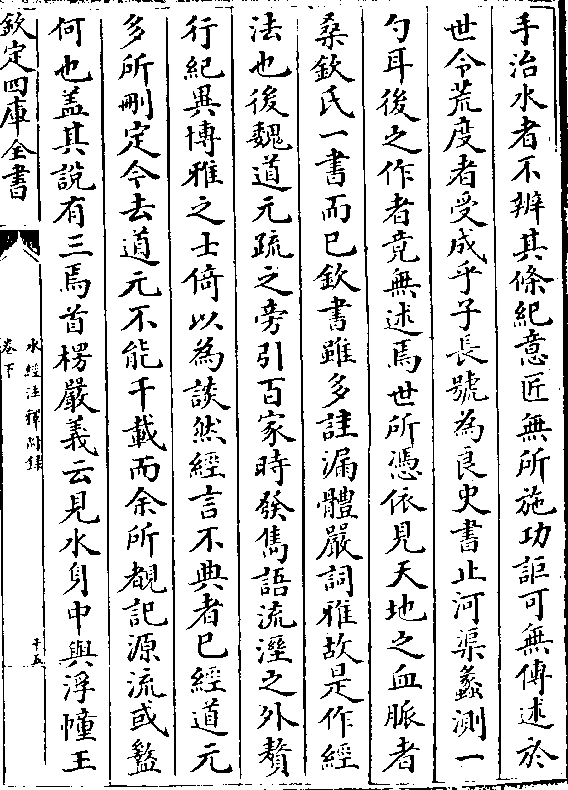 手治水者不辨其條紀意匠無所施功詎可無傳述於
世令荒度者受成乎子長號為良史書止河渠蠡測一
勺耳後之作者竟無述焉世所憑依見天地之血脈者
桑欽氏一書而已欽書雖多註漏體嚴詞雅故是作經
法也後魏道元疏之旁引百家時發雋語流溼之外贅
行紀異博雅之士倚以為談然經言不典者已經道元
多所刪定今去道元不能千載而余所覩記源流或盭
何也盖其說有三焉首楞嚴義云見水身中與浮幢王
欽定四庫全書
水經注釋附錄
卷下
十五